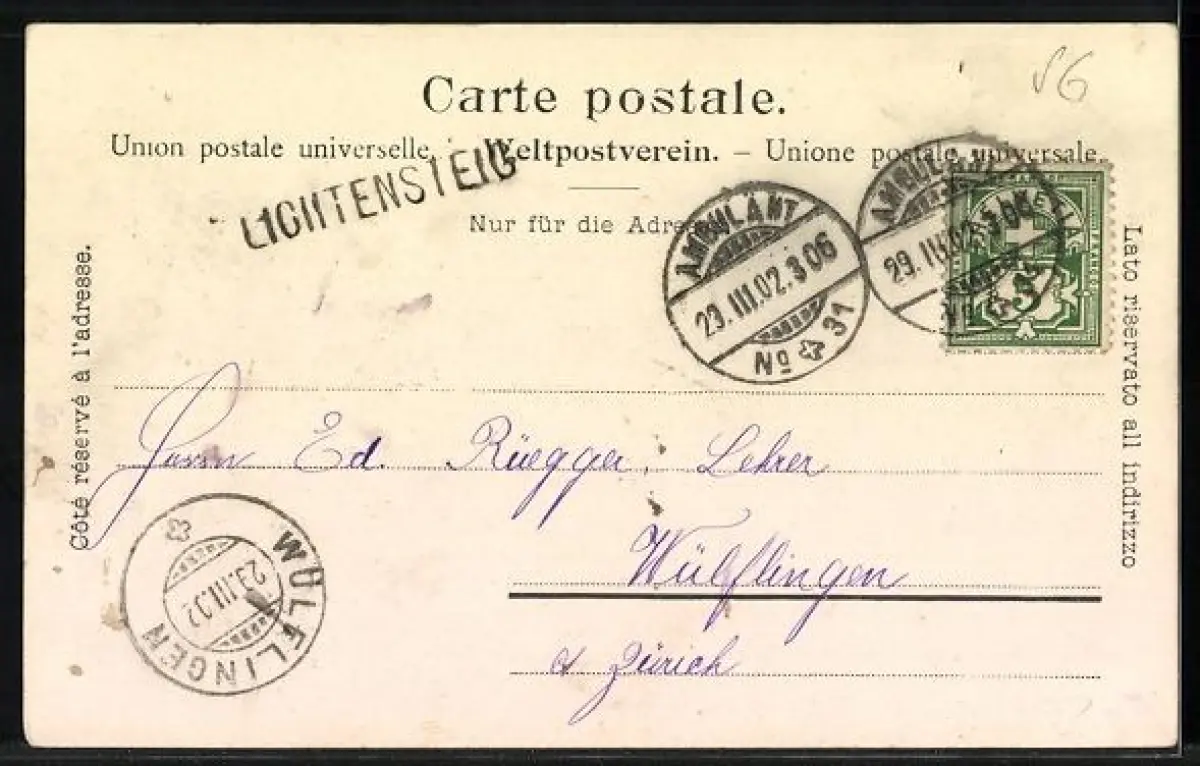 SG
Carte postale.
Union postale universelle. - Weltpostverein. - Unione postale universale.
LICHTENSTEIG
Nur für die Adresse
AMBULANT
23.III.02.306
No 31
AMBULANT
29.III.02
Côté réservé à l'adresse.
Lato riservato all indirizzo
Herrn Ed. Rüegger, Lehrer
Wülflingen
Zürich
WÜLFLINGEN
23.III.02